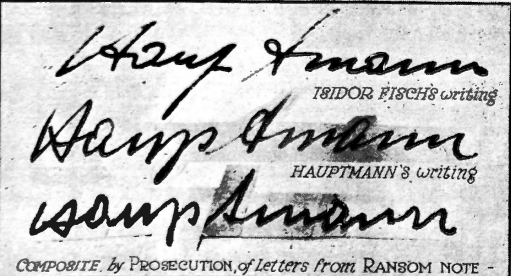 Hauptmann
ISIDOR FISCH'S writing
Hauptmann
HAUPTMANN'S writing
Hauptmann
COMPOSITE, by PROSECUTION, of Letters from RANSOM NOTE -